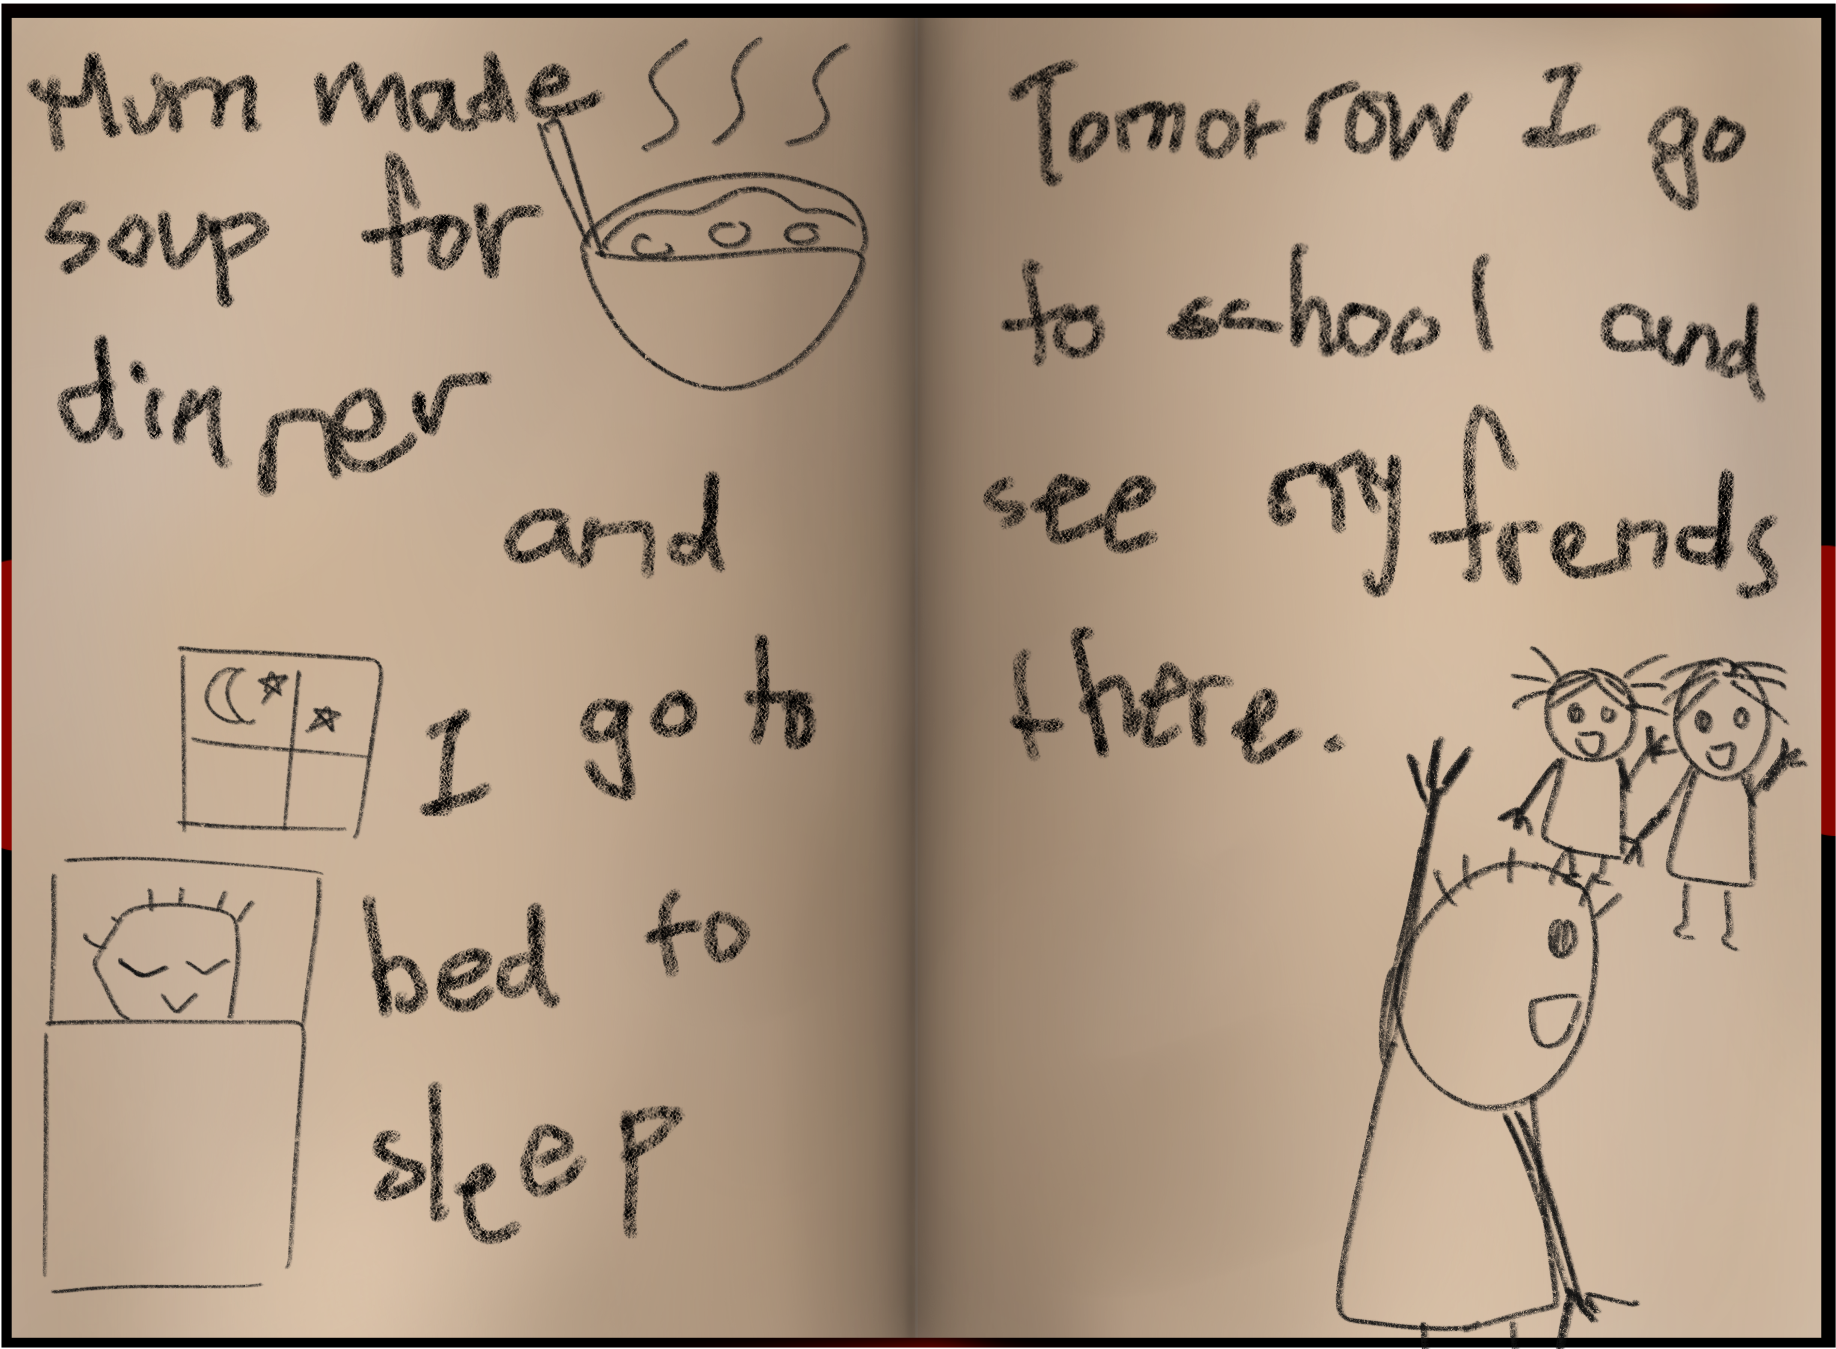 Mum made
soup for
dinner
and
I go to
bed to
sleep
Tomorrow I go
to school and
see my frends
there.